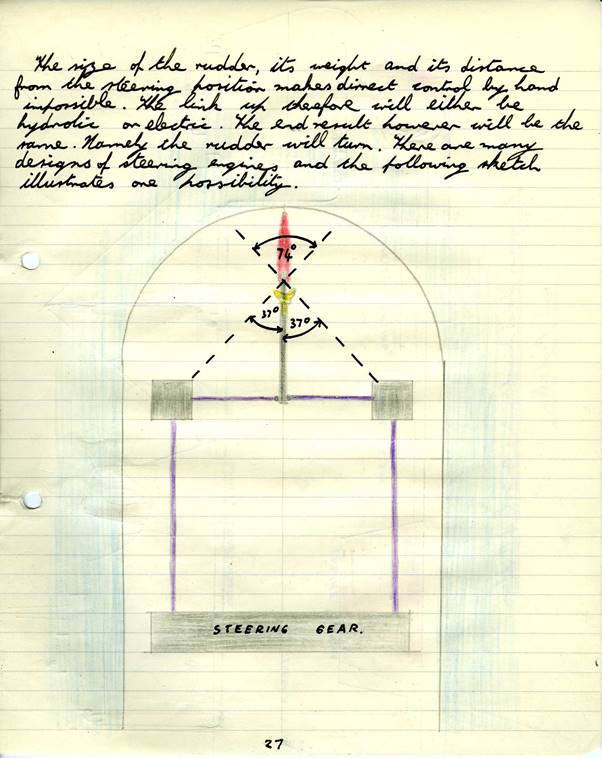 The size of the rudder, its weight and its distance
from the steering position makes direct control by hand
impossible. The link up therefore will either be
hydrolic or electric. The end result however will be the
same. Namely the rudder will turn. There are many
designs of steering engines and the following sketch
illustrates one possibility.
74°
37°
37°
STEERING GEAR.
27